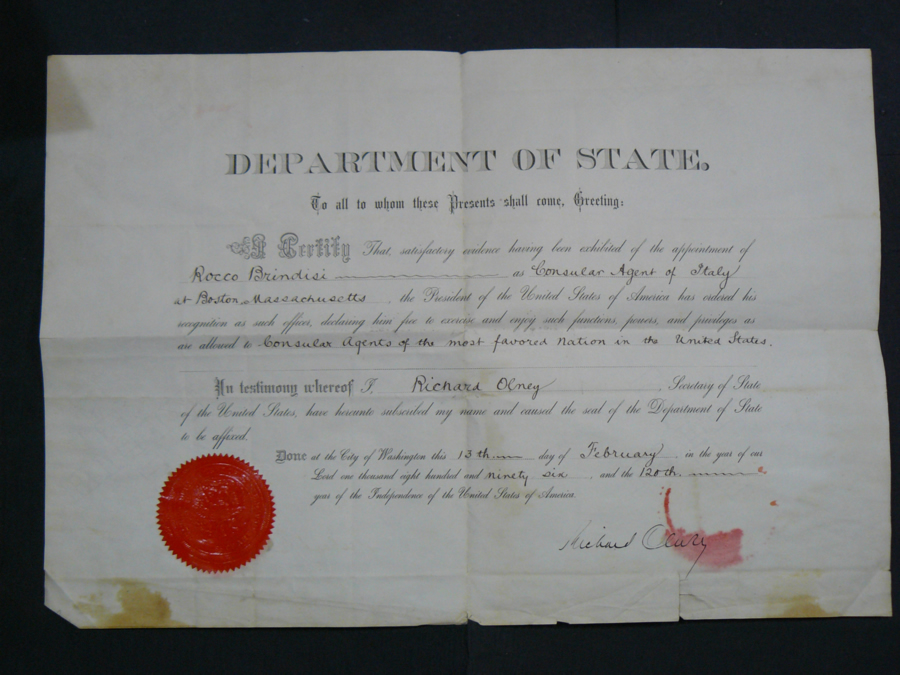 DEPARTMENT OF STATE.
To all to whom these Presents shall come, Greeting:
I Certify That, satisfactory evidence having been exhibited of the appointment of
Rocco Brindisi as Consular Agent of Italy
at Boston, Massachusetts, the President of the United States of America has ordered his
recognition as such officer, declaring him free to exercise and enjoy such functions, powers, and privileges as
are allowed to Consular Agents of the most favored nation in the United States.
In testimony whereof I, Richard Olney, Secretary of State
of the United States, have hereunto subscribed my name and caused the seal of the Department of State
to be affixed.
Done at the City of Washington this 13th day of February, in the year of our
Lord one thousand eight hundred and ninety six, and the 120th
year of the Independence of the United States of America.
Richard Olney